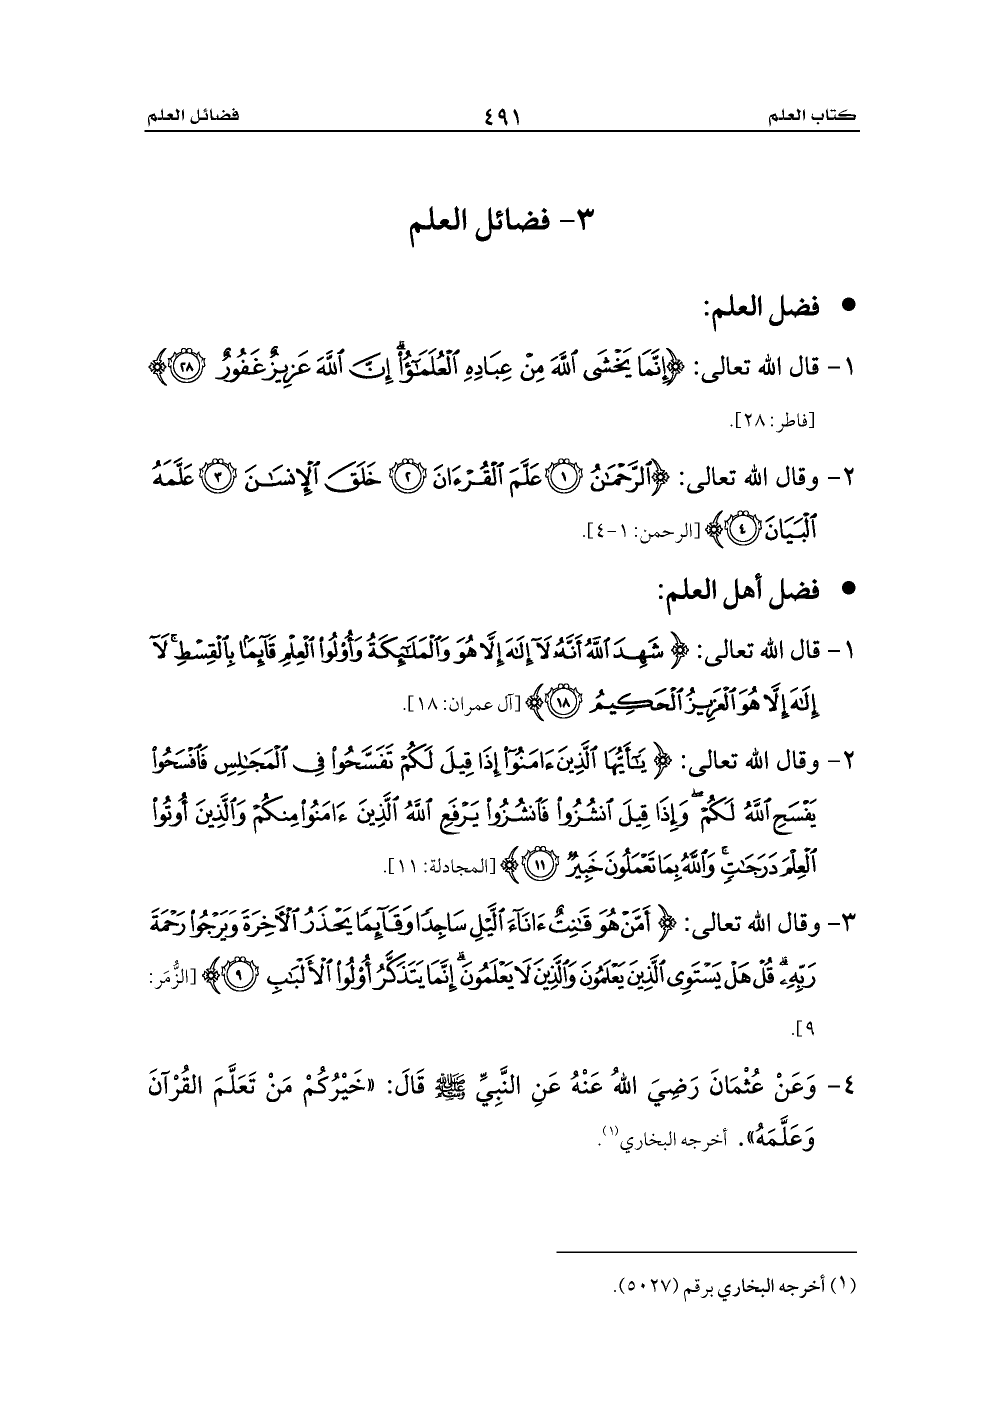 كتاب العلم ٤٩١ فضائل العلم
٣- فضائل العلم
● فضل العلم:
١- قال الله تعالى: ﴿إِنَّمَا يَخْشَى ٱللَّهَ مِنْ عِبَادِهِ ٱلْعُلَمَٰٓؤُا۟ ۗ إِنَّ ٱللَّهَ عَزِيزٌ غَفُورٌ ۝٢٨﴾
[فاطر: ٢٨].
٢- وقال الله تعالى: ﴿ٱلرَّحْمَٰنُ ۝١ عَلَّمَ ٱلْقُرْءَانَ ۝٢ خَلَقَ ٱلْإِنسَٰنَ ۝٣ عَلَّمَهُ
ٱلْبَيَانَ ۝٤﴾ [الرحمن: ١-٤].
● فضل أهل العلم:
١- قال الله تعالى: ﴿شَهِدَ ٱللَّهُ أَنَّهُۥ لَآ إِلَٰهَ إِلَّا هُوَ وَٱلْمَلَٰٓئِكَةُ وَأُو۟لُوا۟ ٱلْعِلْمِ قَآئِمًۢا بِٱلْقِسْطِ ۚ لَآ
إِلَٰهَ إِلَّا هُوَ ٱلْعَزِيزُ ٱلْحَكِيمُ ۝١٨﴾ [آل عمران: ١٨].
٢- وقال الله تعالى: ﴿يَٰٓأَيُّهَا ٱلَّذِينَ ءَامَنُوٓا۟ إِذَا قِيلَ لَكُمْ تَفَسَّحُوا۟ فِى ٱلْمَجَٰلِسِ فَٱفْسَحُوا۟
يَفْسَحِ ٱللَّهُ لَكُمْ ۖ وَإِذَا قِيلَ ٱنشُزُوا۟ فَٱنشُزُوا۟ يَرْفَعِ ٱللَّهُ ٱلَّذِينَ ءَامَنُوا۟ مِنكُمْ وَٱلَّذِينَ أُوتُوا۟
ٱلْعِلْمَ دَرَجَٰتٍ ۚ وَٱللَّهُ بِمَا تَعْمَلُونَ خَبِيرٌ ۝١١﴾ [المجادلة: ١١].
٣- وقال الله تعالى: ﴿أَمَّنْ هُوَ قَٰنِتٌ ءَانَآءَ ٱلَّيْلِ سَاجِدًا وَقَآئِمًا يَحْذَرُ ٱلْءَاخِرَةَ وَيَرْجُوا۟ رَحْمَةَ
رَبِّهِۦ ۗ قُلْ هَلْ يَسْتَوِى ٱلَّذِينَ يَعْلَمُونَ وَٱلَّذِينَ لَا يَعْلَمُونَ ۗ إِنَّمَا يَتَذَكَّرُ أُو۟لُوا۟ ٱلْأَلْبَٰبِ ۝٩﴾ [الزُّمَر:
٩].
٤- وَعَنْ عُثْمَانَ رَضِيَ اللهُ عَنْهُ عَنِ النَّبِيِّ ﷺ قَالَ: «خَيْرُكُمْ مَنْ تَعَلَّمَ القُرْآنَ
وَعَلَّمَهُ». أخرجه البخاري(١).
(١) أخرجه البخاري برقم (٥٠٢٧).